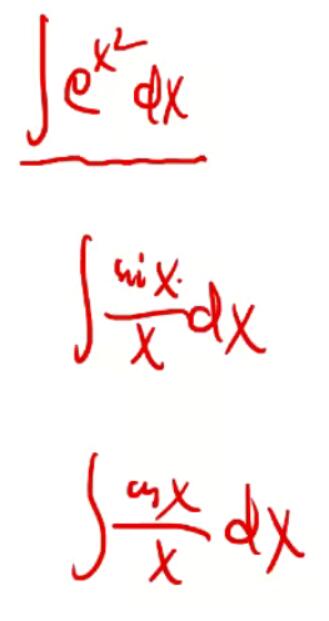 ∫ e^{x^2} dx
∫ \frac{\sin x}{x} dx
∫ \frac{\cos x}{x} dx